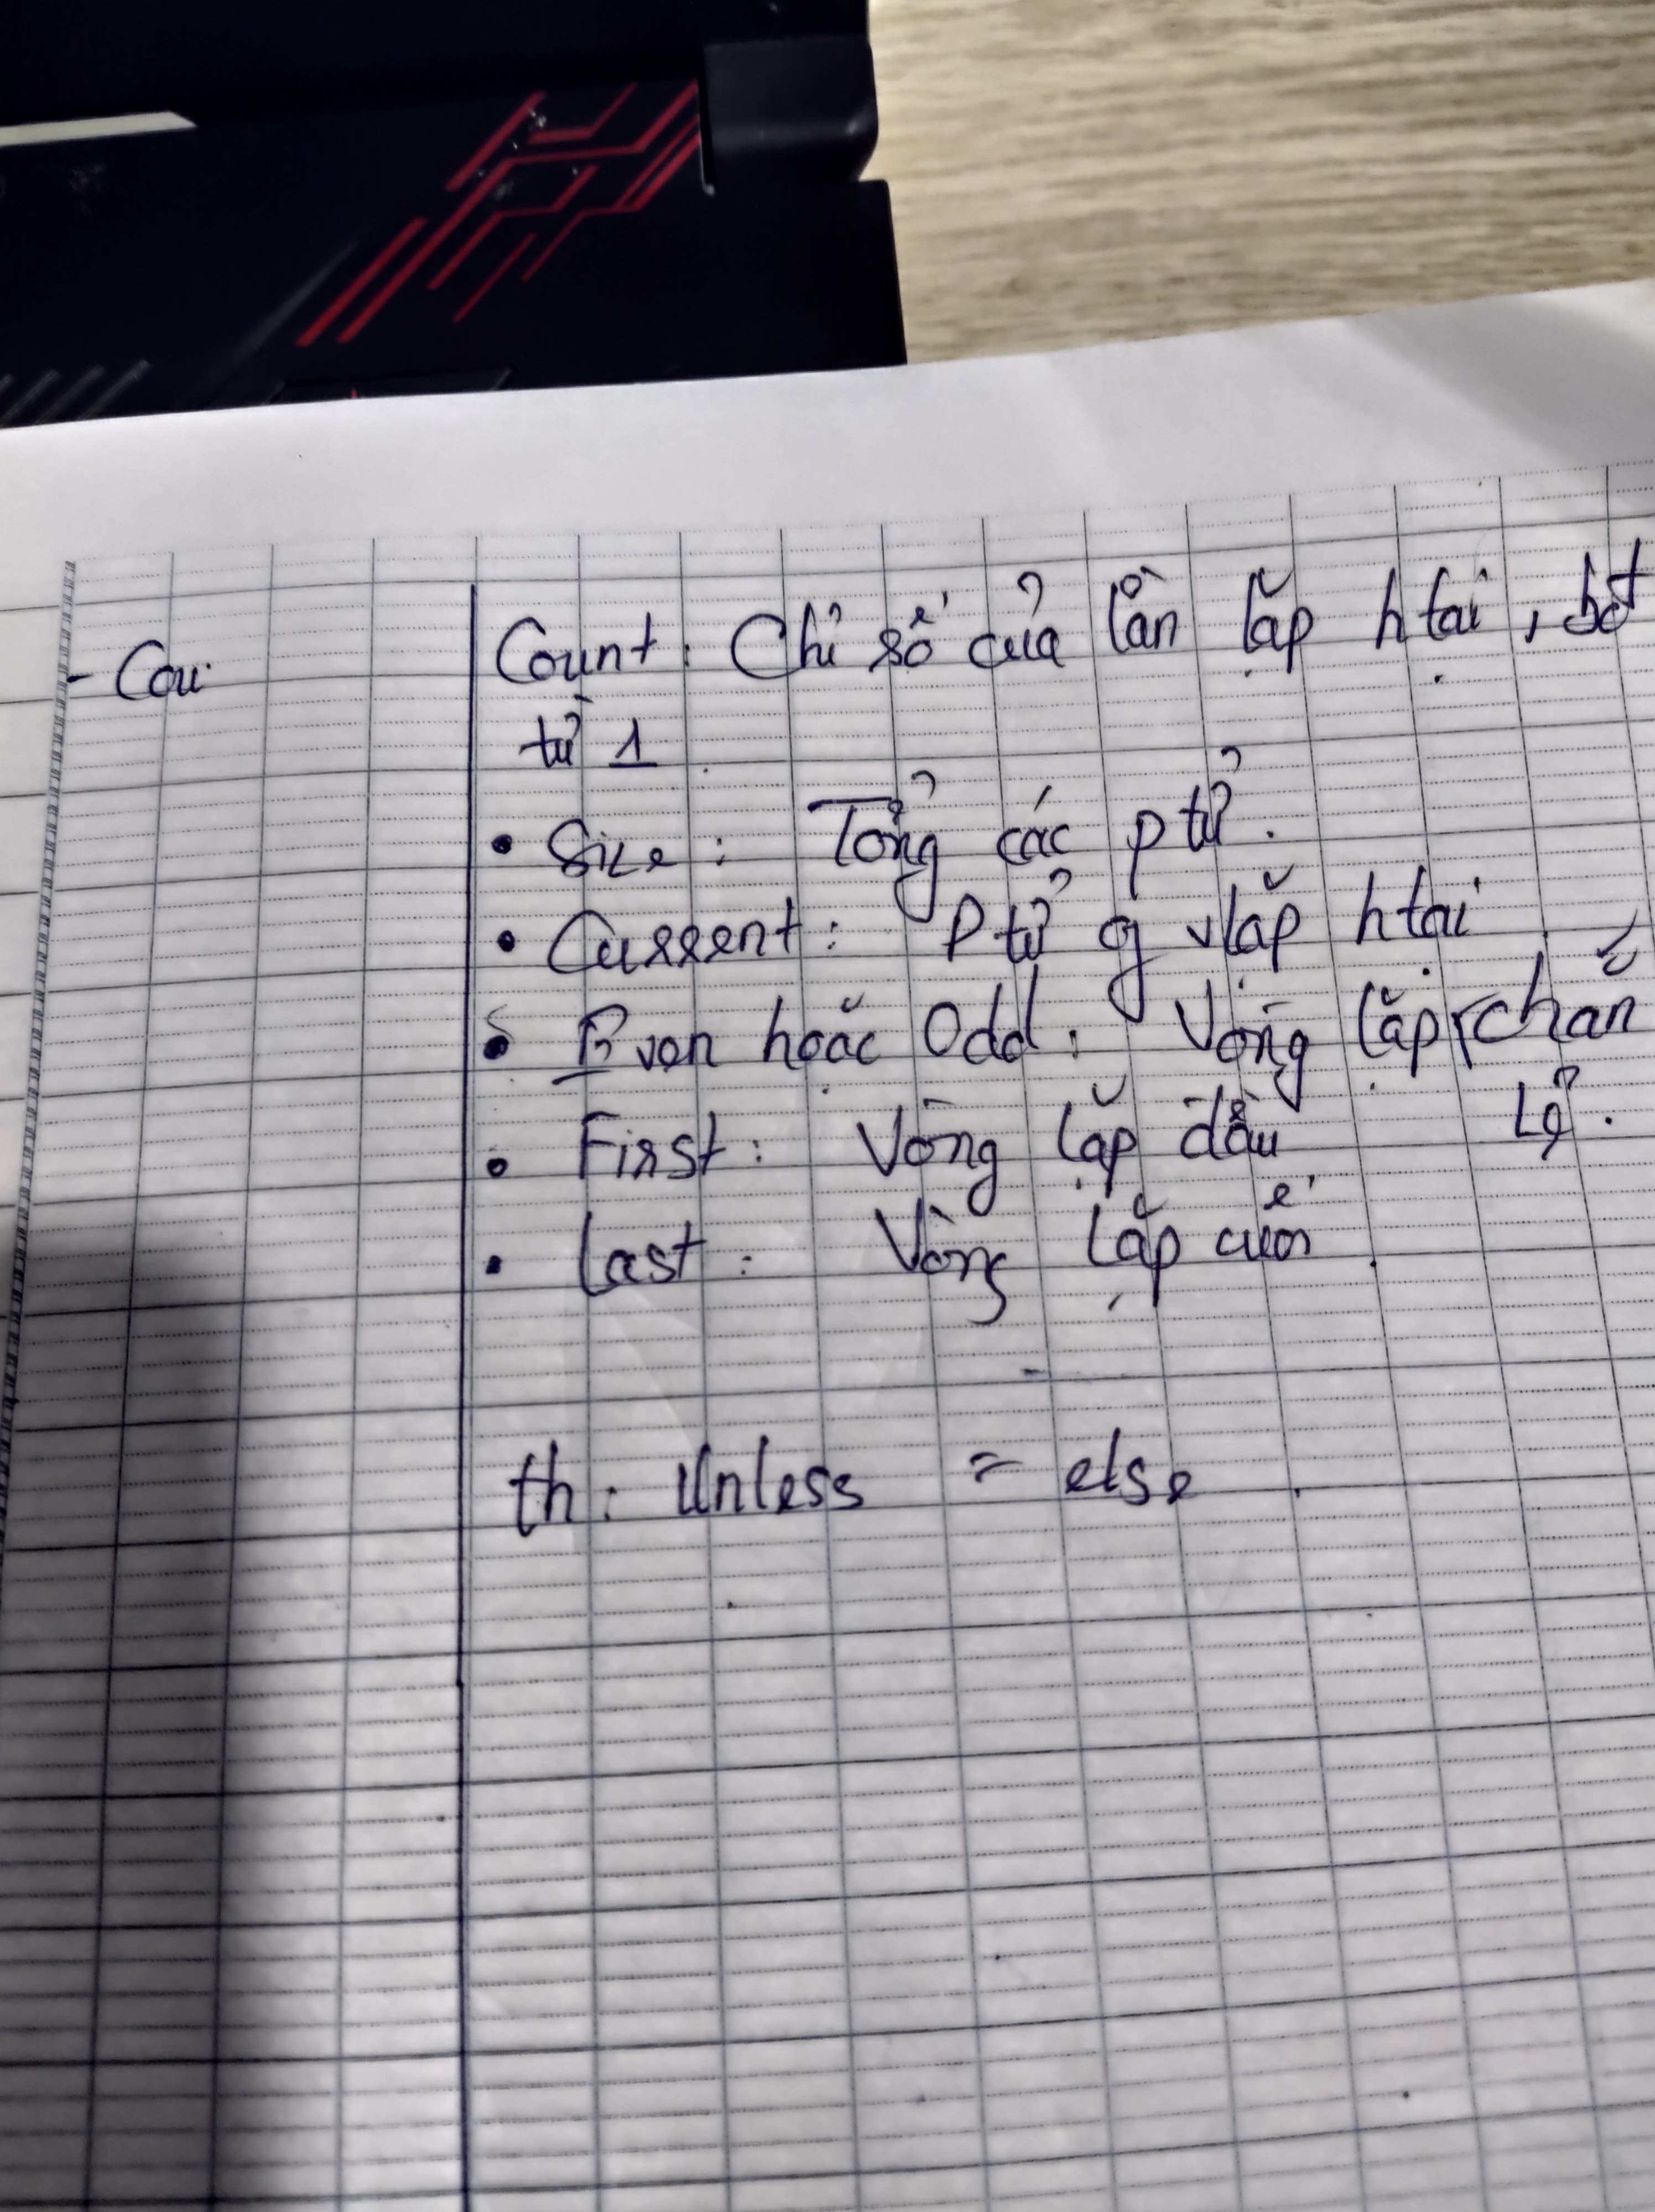 - Cou
Count: Chỉ số của lần lặp htại, bđ
từ 1
• Size: Tổng các ptử.
• Current: Ptử of vlặp htại
• Even hoặc Odd: Vòng lặp chẵn
Lẻ.
• First: Vòng lặp đầu
• Last: Vòng lặp cuối.
th: Unless = else.